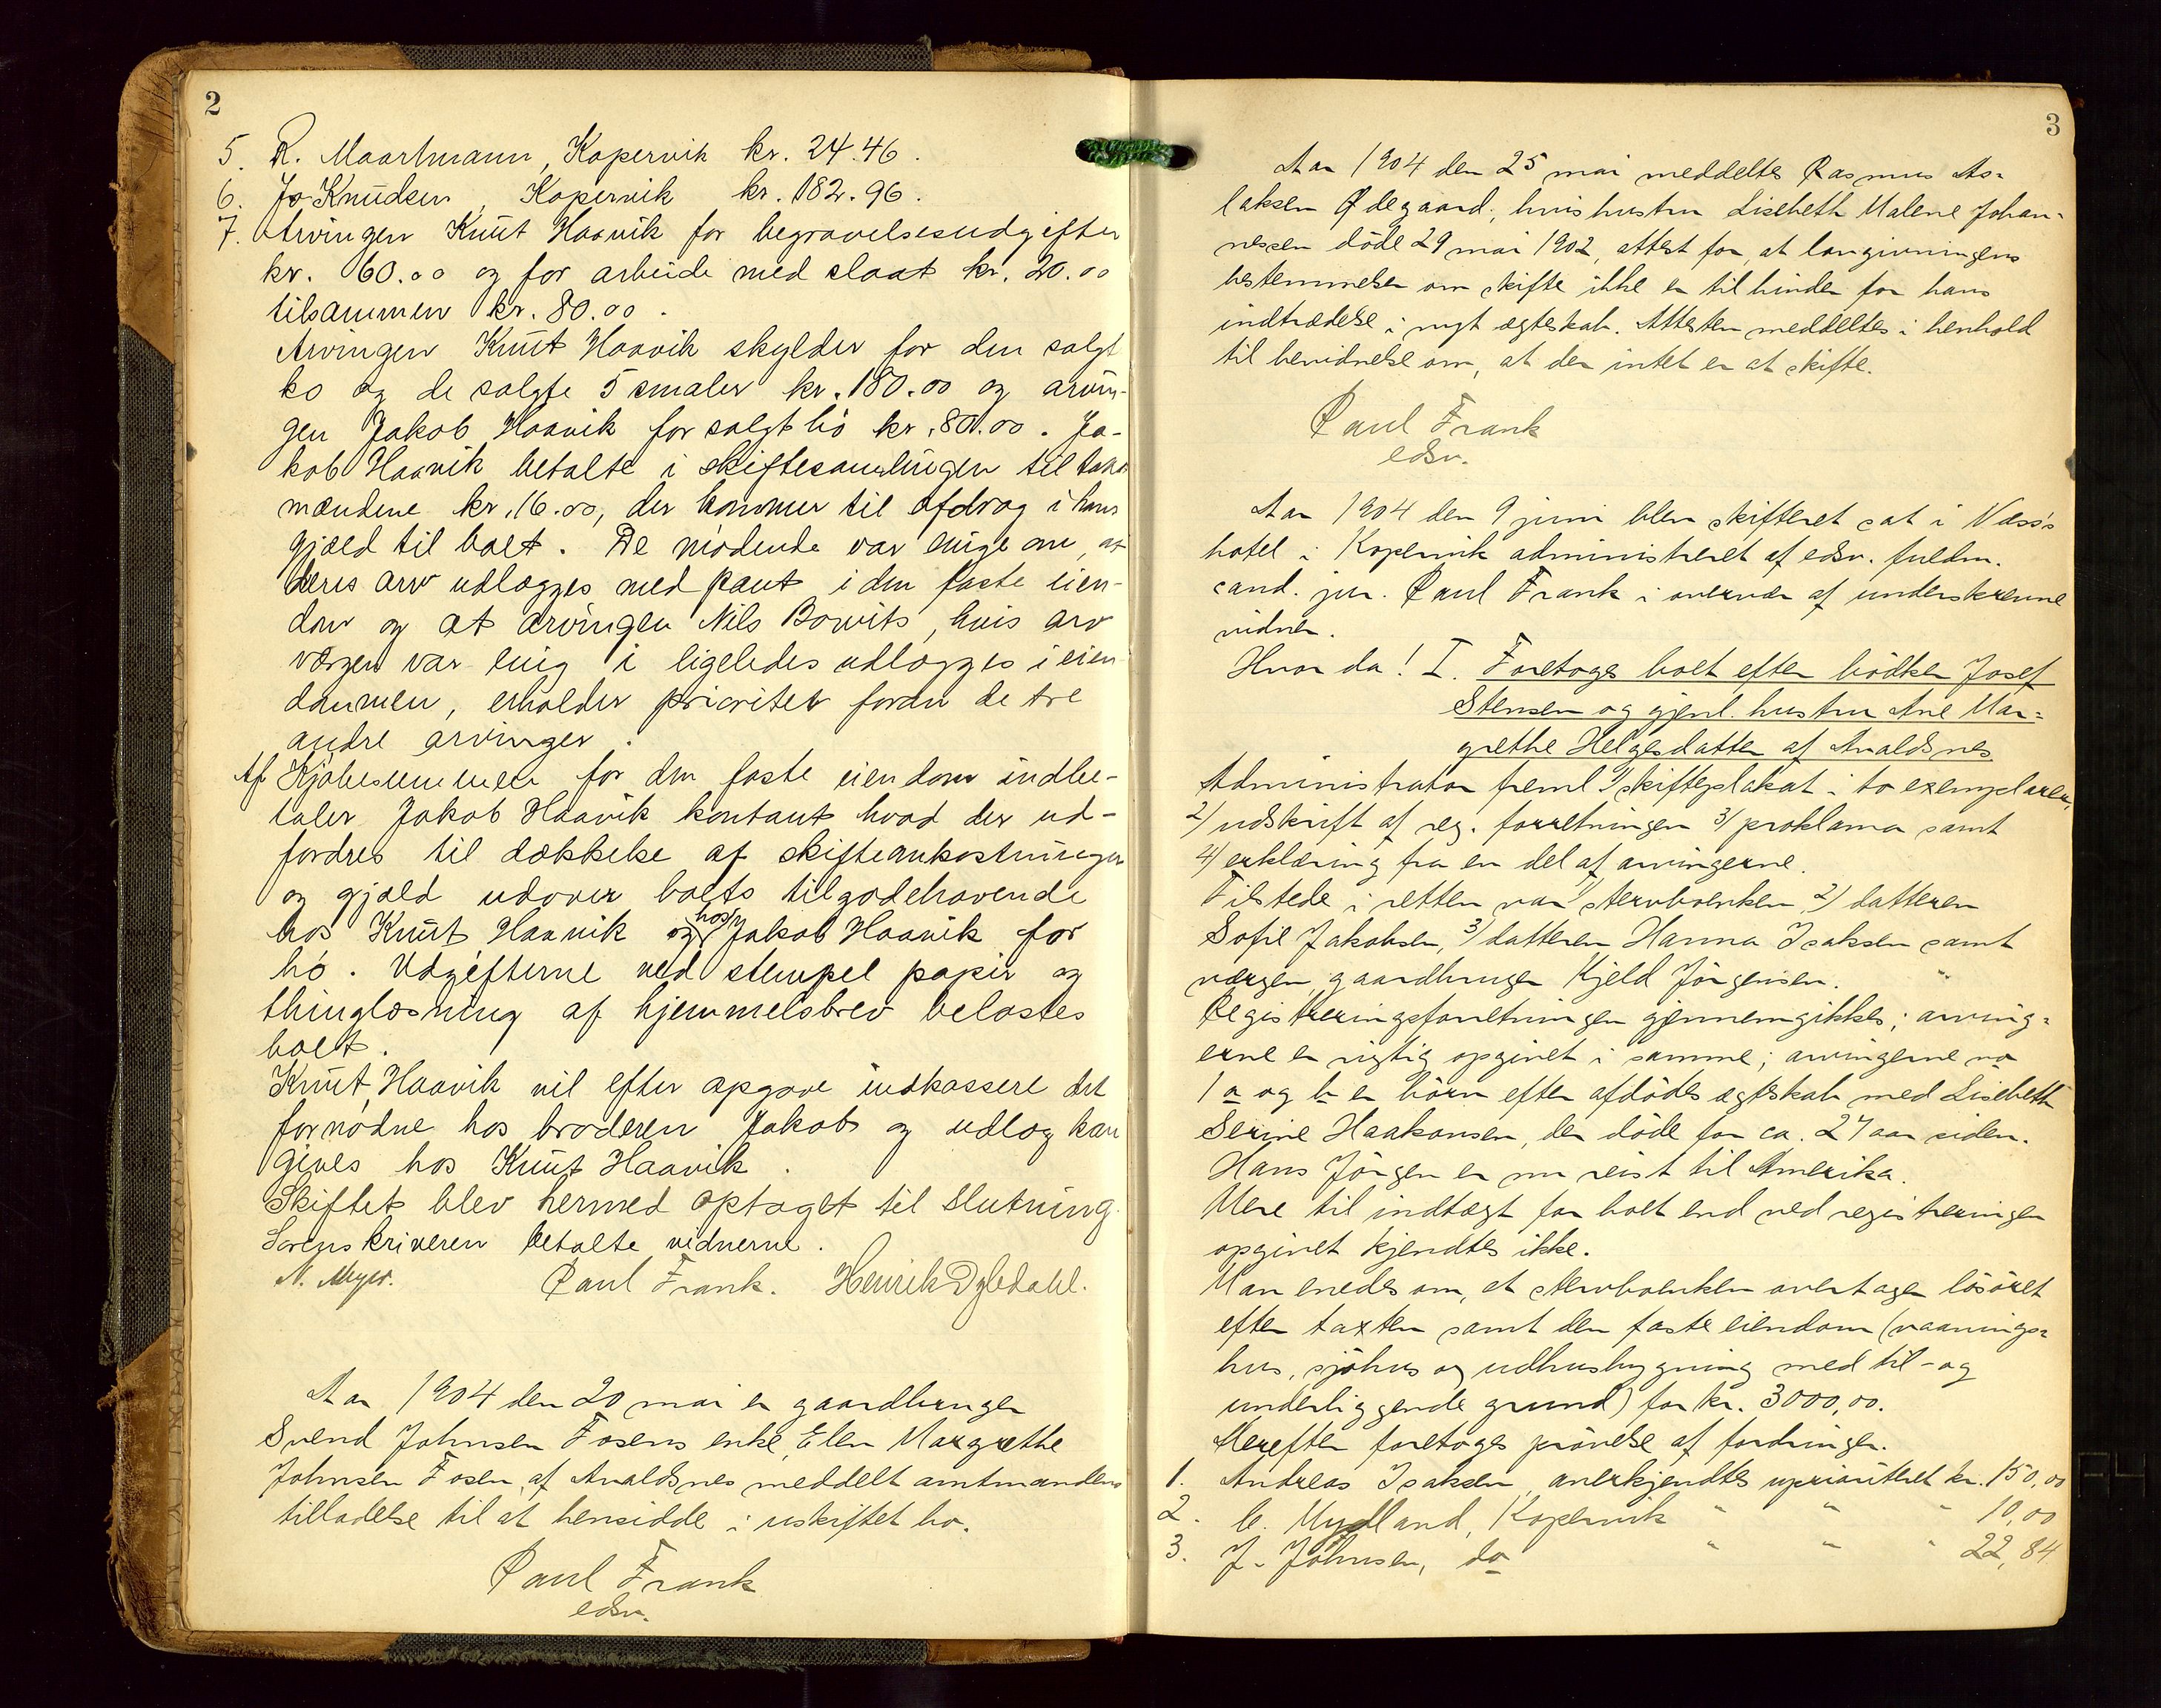 2
5. R. Maartmann, Kopervik kr. 24.46.
6. Jo Knudsen, Kopervik kr. 182.96.
7. Arvingen Knut Haavik for begravelsesudgifter
kr. 60.00 og for arbeide med slaat kr. 20.00
tilsammen kr. 80.00.
Arvingen Knut Haavik skylder for den solgt
ko og de solgte 5 smaler kr. 180.00 og arvin-
gen Jakob Haavik for solgt hö kr. 80.00. Ja-
kob Haavik betalte i skiftesamlingen til takst
mændene kr. 16.00, der kommer til afdrag i hans
gjæld til boet. De mödende var enige om, at
deres arv udlægges med pant i den faste eien-
dom og at arvingen Nils Bowits, hvis arv
værgen var enig i ligeledes udlægges i eien-
dommen, erholder prioritet foran de tre
andre arvinger.
Af Kjöbesummen for den faste eiendom indbe-
taler Jakob Haavik kontant hvad der ud-
fordres til dækkelse af skifteomkostninger
og gjæld udover boets tilgodehavende
hos Knut Haavik og hos Jakob Haavik for
hö. Udgifterne ved stempel papir og
thinglæsning af hjemmelsbrev belastes
boet.
Knut Haavik vil efter opgave indkassere det
fornödne hos broderen Jakob og udlæg kan
gives hos Knut Haavik.
Skiftet blev hermed optaget til slutning.
Sorenskriveren betalte vidnerne.
N. Meyer. Paul Frank. Henrik Dybdahl.
Aar 1904 den 20 mai er gaardbruger
Svend Johnsen Fosens enke, Elen Margrethe
Johnsen Fosen, af Avaldsnes meddelt amtmandens
tilladelse til at hensidde i uskiftet bo.
Paul Frank
edsv.
3
Aar 1904 den 25 mai meddeltes Rasmus As-
laksen Ødegaard, hvis hustru Lisebeth Malene Johan-
nesen döde 29 mai 1902, attest for, at lovgivningens
bestemmelser om skifte ikke er til hinder for hans
indtrædelse i nyt ægteskab. Attesten meddeltes i henhold
til bevidnelse om, at der intet er at skifte.
Paul Frank
edsv.
Aar 1904 den 9 juni blev skifteret sat i Næss's
hotel i Kopervik administreret af edsv. fuldm.
cand. jur. Paul Frank i overvær af underskrevne
vidner.
Hvor da! I. Foretoges boet efter bödker Josef
Stensen og gjenl. hustru Ane Mar-
grethe Helgesdatter af Avaldsnes.
Administrator freml 1) skifteplakat i to exemplarer,
2) udskrift af reg. forretningen 3) proklama samt
4) erklæring fra en del af arvingerne.
Tilstede i retten var 1) stervboenken, 2) datteren
Sofie Jakobsen, 3) datteren Hanna Isaksen samt
værgen, gaardbruger Kjeld Jörgensen.
Registreringsforretningen gjennemgikkes; arving-
erne er rigtig opgivet i samme; arvingerne no
1 a og b er börn efter afdödes ægteskab med Lisebeth
Serine Haakonsen, der döde for ca. 27 aar siden.
Hans Jörgen er nu reist til Amerika.
Mere til indtægt for boet end ved registreringen
opgivet kjendtes ikke.
Man enedes om, at stervboenken overtager lösöret
efter taxten samt den faste eiendom (vaanings-
hus, sjöhus og udhusbygning med til- og
underliggende grund) for kr. 3000,00.
Derefter foretoges prövelse af fordringer.
1. Andreas Isaksen, anerkjendtes uprioriteret kr. 150,00
2. C. Mydland, Kopervik " " " 10,00
3. J. Johnsen, do " " " 22,84